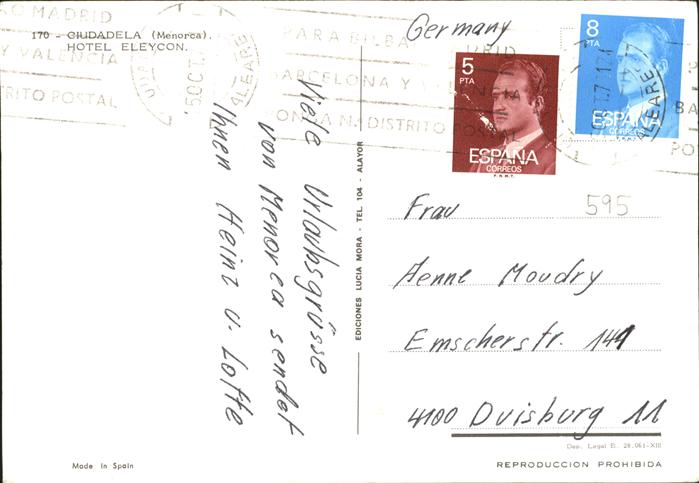 170 - CIUDADELA (Menorca).
HOTEL ELEYCON.
O MADRID
Y VALENCIA
DISTRITO POSTAL
PARA BILBA
BARCELONA Y VALENCIA
PONGA N.º DISTRITO POSTAL
Germany
5
PTA
ESPAÑA
CORREOS
F.N.M.T.
8
PTA
ESPAÑA
CORREOS
Viele Urlaubsgrüsse
von Menorca sendet
Ihnen Heinz u. Lotte
EDICIONES LUCIA MORA - TEL. 104 - ALAYOR
595
Frau
Aenne Moudry
Emscherstr. 141
4100 Duisburg 11
Dep. Legal B. 28.061-XIII
Made in Spain
REPRODUCCION PROHIBIDA